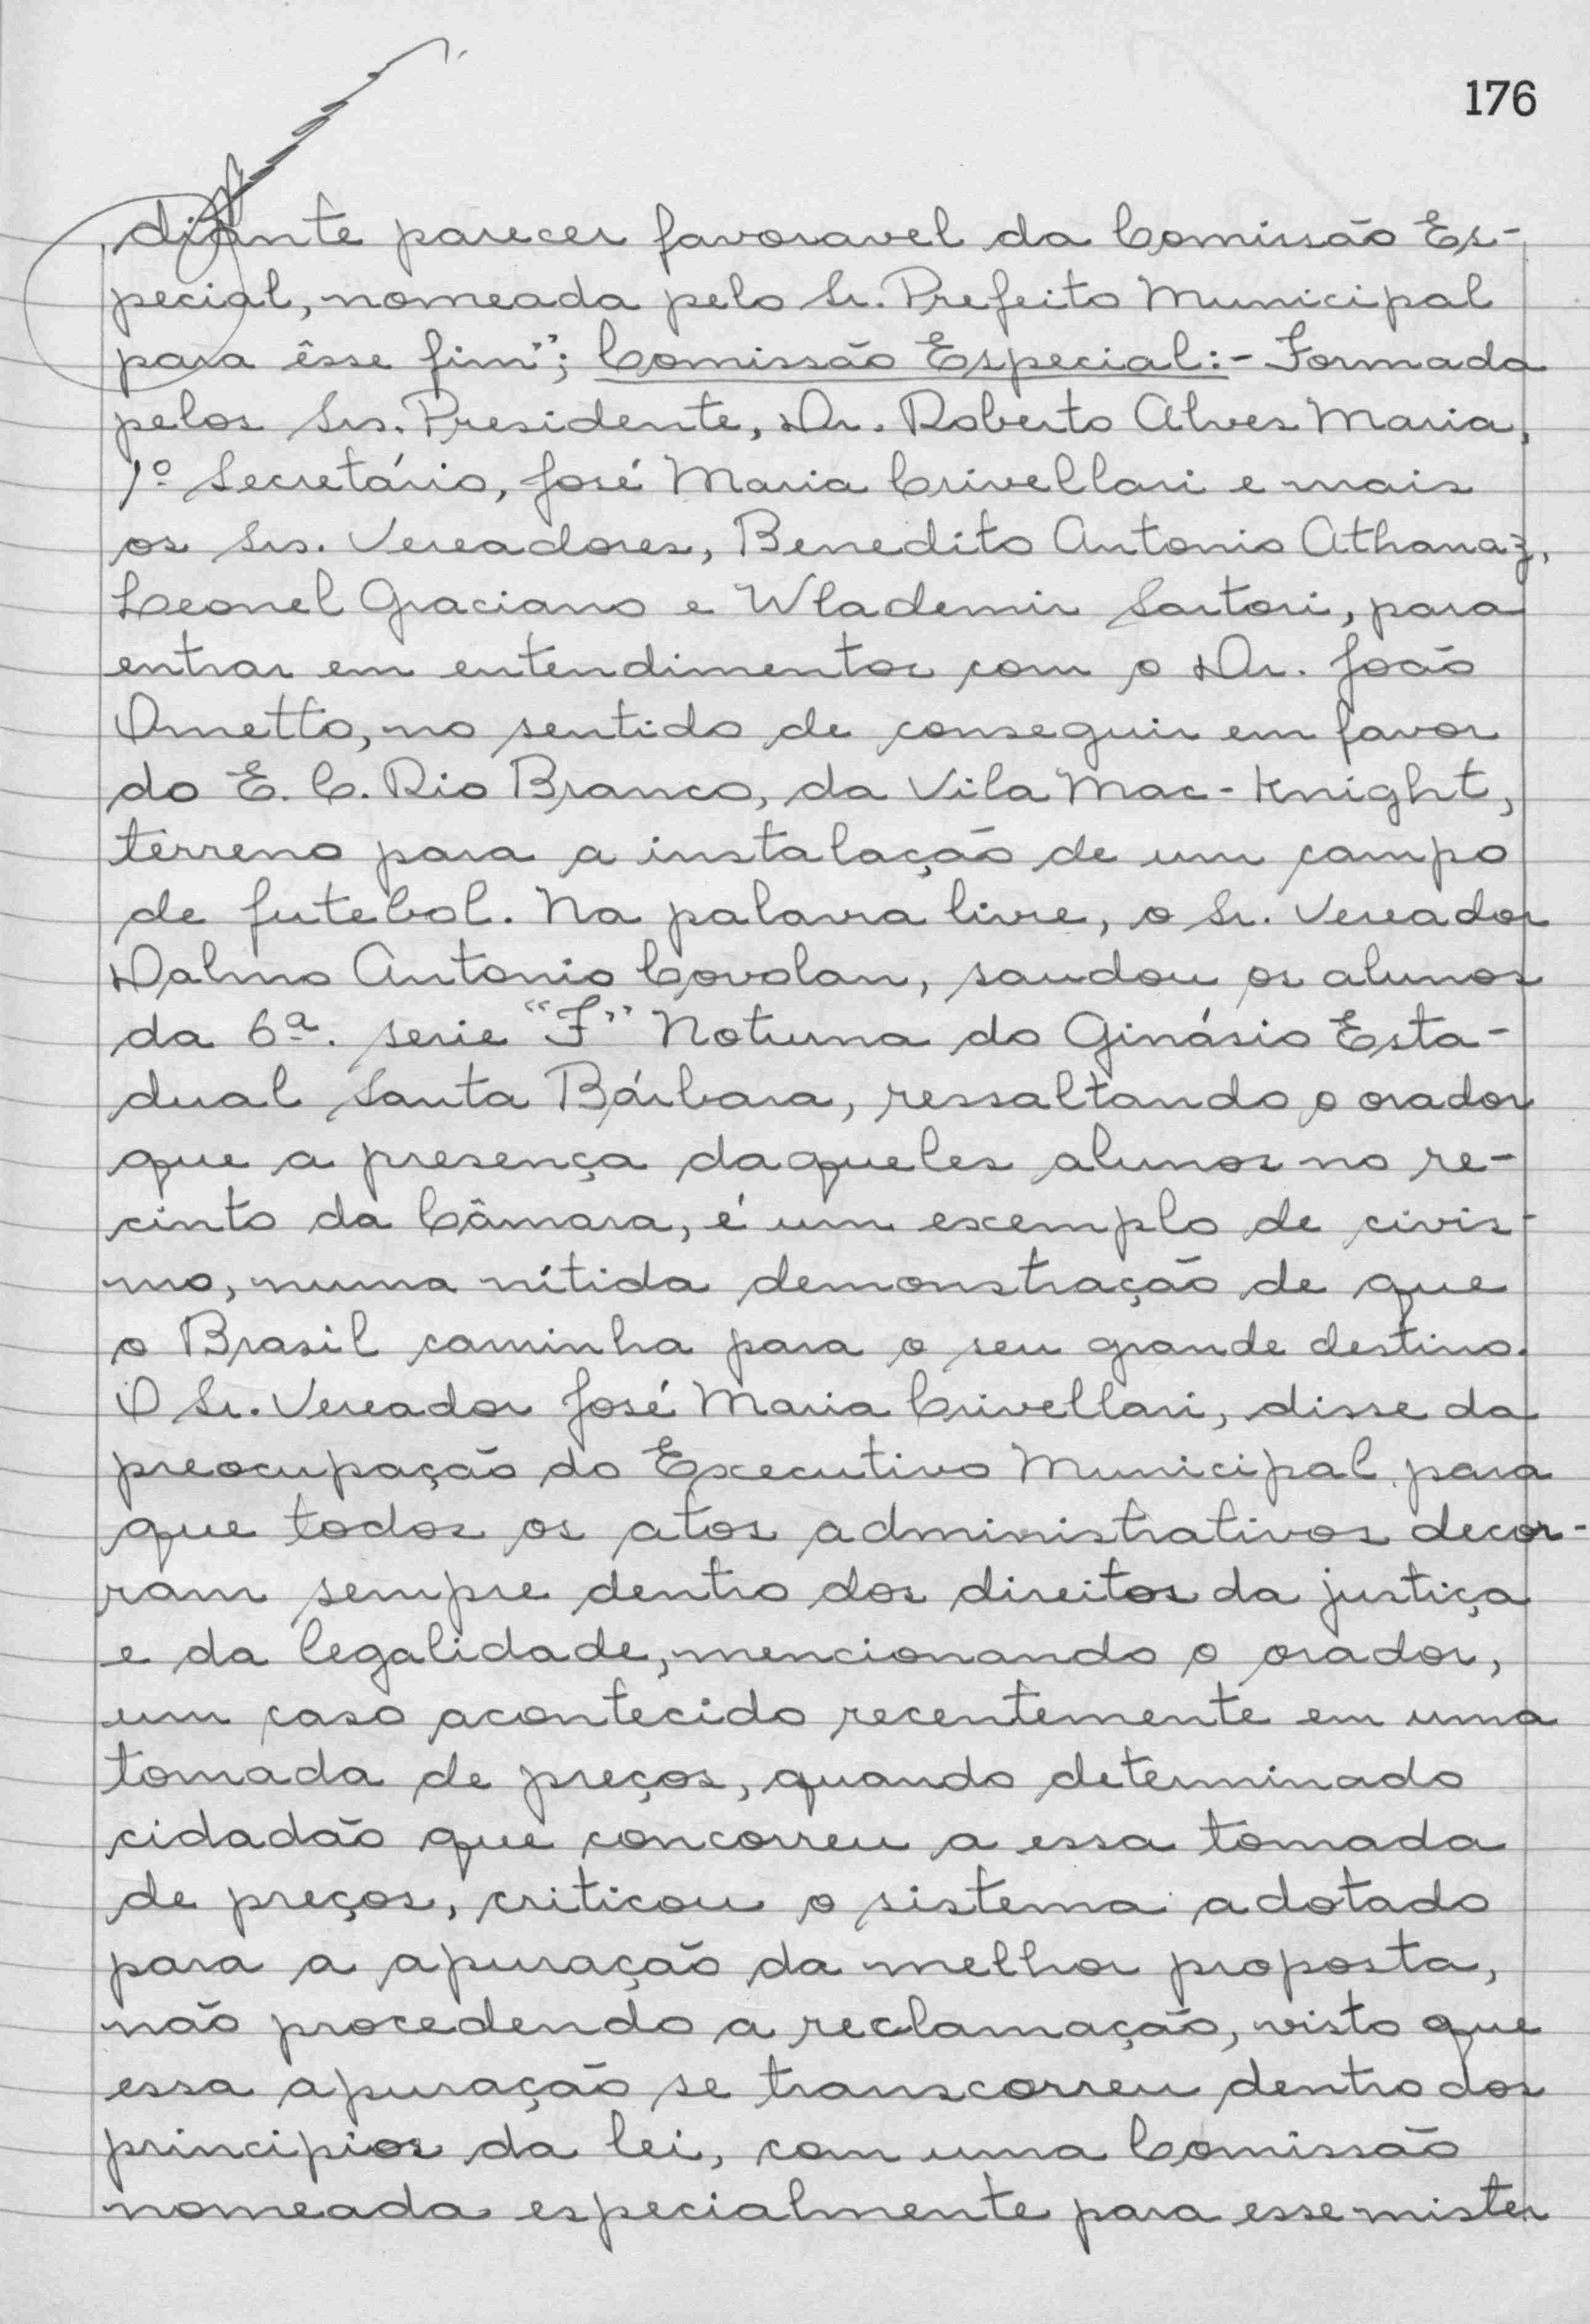 176
diante parecer favoravel da Comissão Es-
pecial, nomeada pelo Sr. Prefeito Municipal
para êsse fim"; Comissão Especial:- Formada
pelos Srs. Presidente, Dr. Roberto Alves Maria,
1º Secretário, José Maria Crivellari e mais
os Srs. Vereadores, Benedito Antonio Athanaz,
Leonel Graciano e Wlademir Sartori, para
entrar em entendimentos com o Dr. João
Ometto, no sentido de conseguir em favor
do E. C. Rio Branco, da Vila Mac-Knight,
terreno para a instalação de um campo
de futebol. Na palavra livre, o Sr. Vereador
Dalmo Antonio Covolan, saudou os alunos
da 6ª. serie "F" Noturna do Ginásio Esta-
dual Santa Bárbara, ressaltando o orador
que a presença daqueles alunos no re-
cinto da Câmara, é um exemplo de civis-
mo, numa nítida demonstração de que
o Brasil caminha para o seu grande destino.
O Sr. Vereador José Maria Crivellari, disse da
preocupação do Executivo Municipal para
que todos os atos administrativos decor-
ram sempre dentro dos direitos da justiça
e da legalidade, mencionando o orador,
um caso acontecido recentemente em uma
tomada de preços, quando determinado
cidadão que concorreu a essa tomada
de preços, criticou o sistema adotado
para a apuração da melhor proposta,
não procedendo a reclamação, visto que
essa apuração se transcorreu dentro dos
principios da lei, com uma Comissão
nomeada especialmente para esse mister